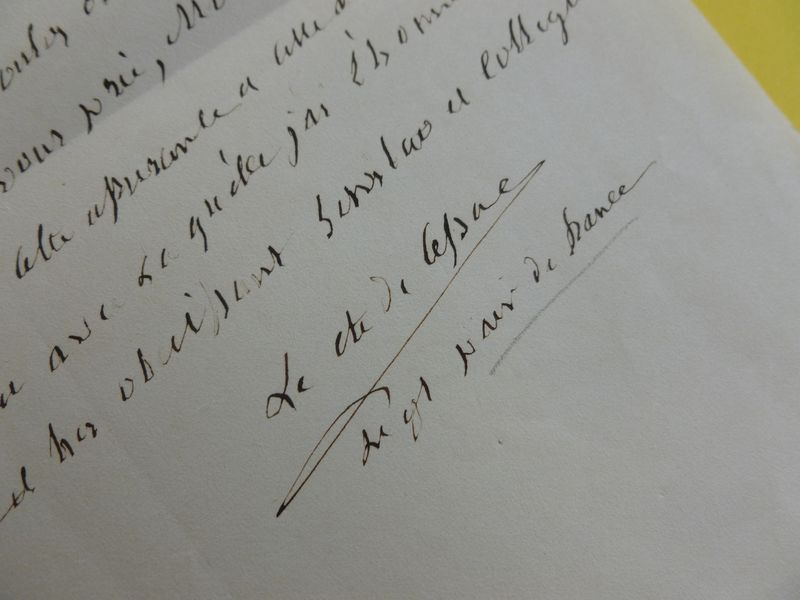 vous prie, M
cette assurance a cette
avec laquelle j'ai l'honn
et très obeissant serviteur et collègu
Le cte de Cessac
pair de france